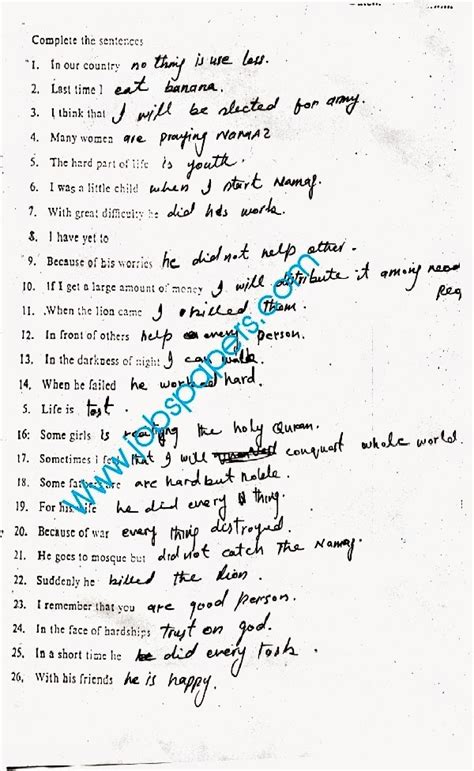 Complete the sentences
1. In our country no thing is use less.
2. Last time I eat banana.
3. I think that I will be slected for army.
4. Many women are praying NAMAZ
5. The hard part of life is youth.
6. I was a little child when I start Namaz.
7. With great difficulty he did his work.
8. I have yet to
9. Because of his worries he did not help other.
10. If I get a large amount of money I will distribute it among need
11. When the lion came I killed them.
12. In front of others help every person.
13. In the darkness of night I can walk.
14. When he failed he worked hard.
5. Life is test.
16: Some girls is the holy Quran.
17. Sometimes I feel that I will conquest whole world.
18. Some fathers are hard but noble.
19. For his life he did every thing.
20. Because of war every thing distroyed.
21. He goes to mosque but did not catch the Namaz.
22. Suddenly he killed the lion.
23. I remember that you are good person.
24. In the face of hardships trust on god.
25. In a short time he did every task.
26, With his friends he is happy.
www.jobspapers.com